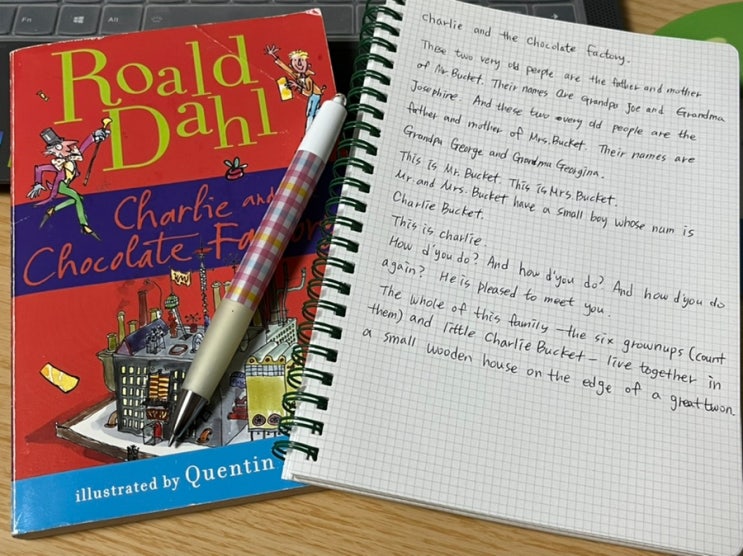 Roald
Dahl
Charlie and
Chocolate Fa
illustrated by Quentin
Charlie and the Chocolate Factory.
These two very old people are the father and mother
of Mr Bucket. Their names are Grandpa Joe and Grandma
Josephine. And these two very old people are the
father and mother of Mrs. Bucket. Their names are
Grandpa George and Grandma Georgina.
This is Mr. Bucket. This is Mrs. Bucket.
Mr. and Mrs. Bucket have a small boy whose nam is
Charlie Bucket.
This is charlie.
How d'you do? And how d'you do? And how d'you do
again? He is pleased to meet you.
The whole of this family – the six grownups (count
them) and little Charlie Bucket – live together in
a small wooden house on the edge of a great twon.